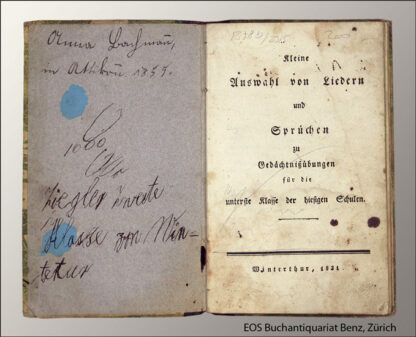 Anna Bachman,
in Attikon 1855.
1000
Ziegler zweite
Klasse von Win-
tetur
Kleine
Auswahl von Liedern
und
Sprüchen
zu
Gedächtnißübungen
für die
unterste Klasse der hiesigen Schulen.
Winterthur, 1821
EOS Buchantiquariat Benz, Zürich